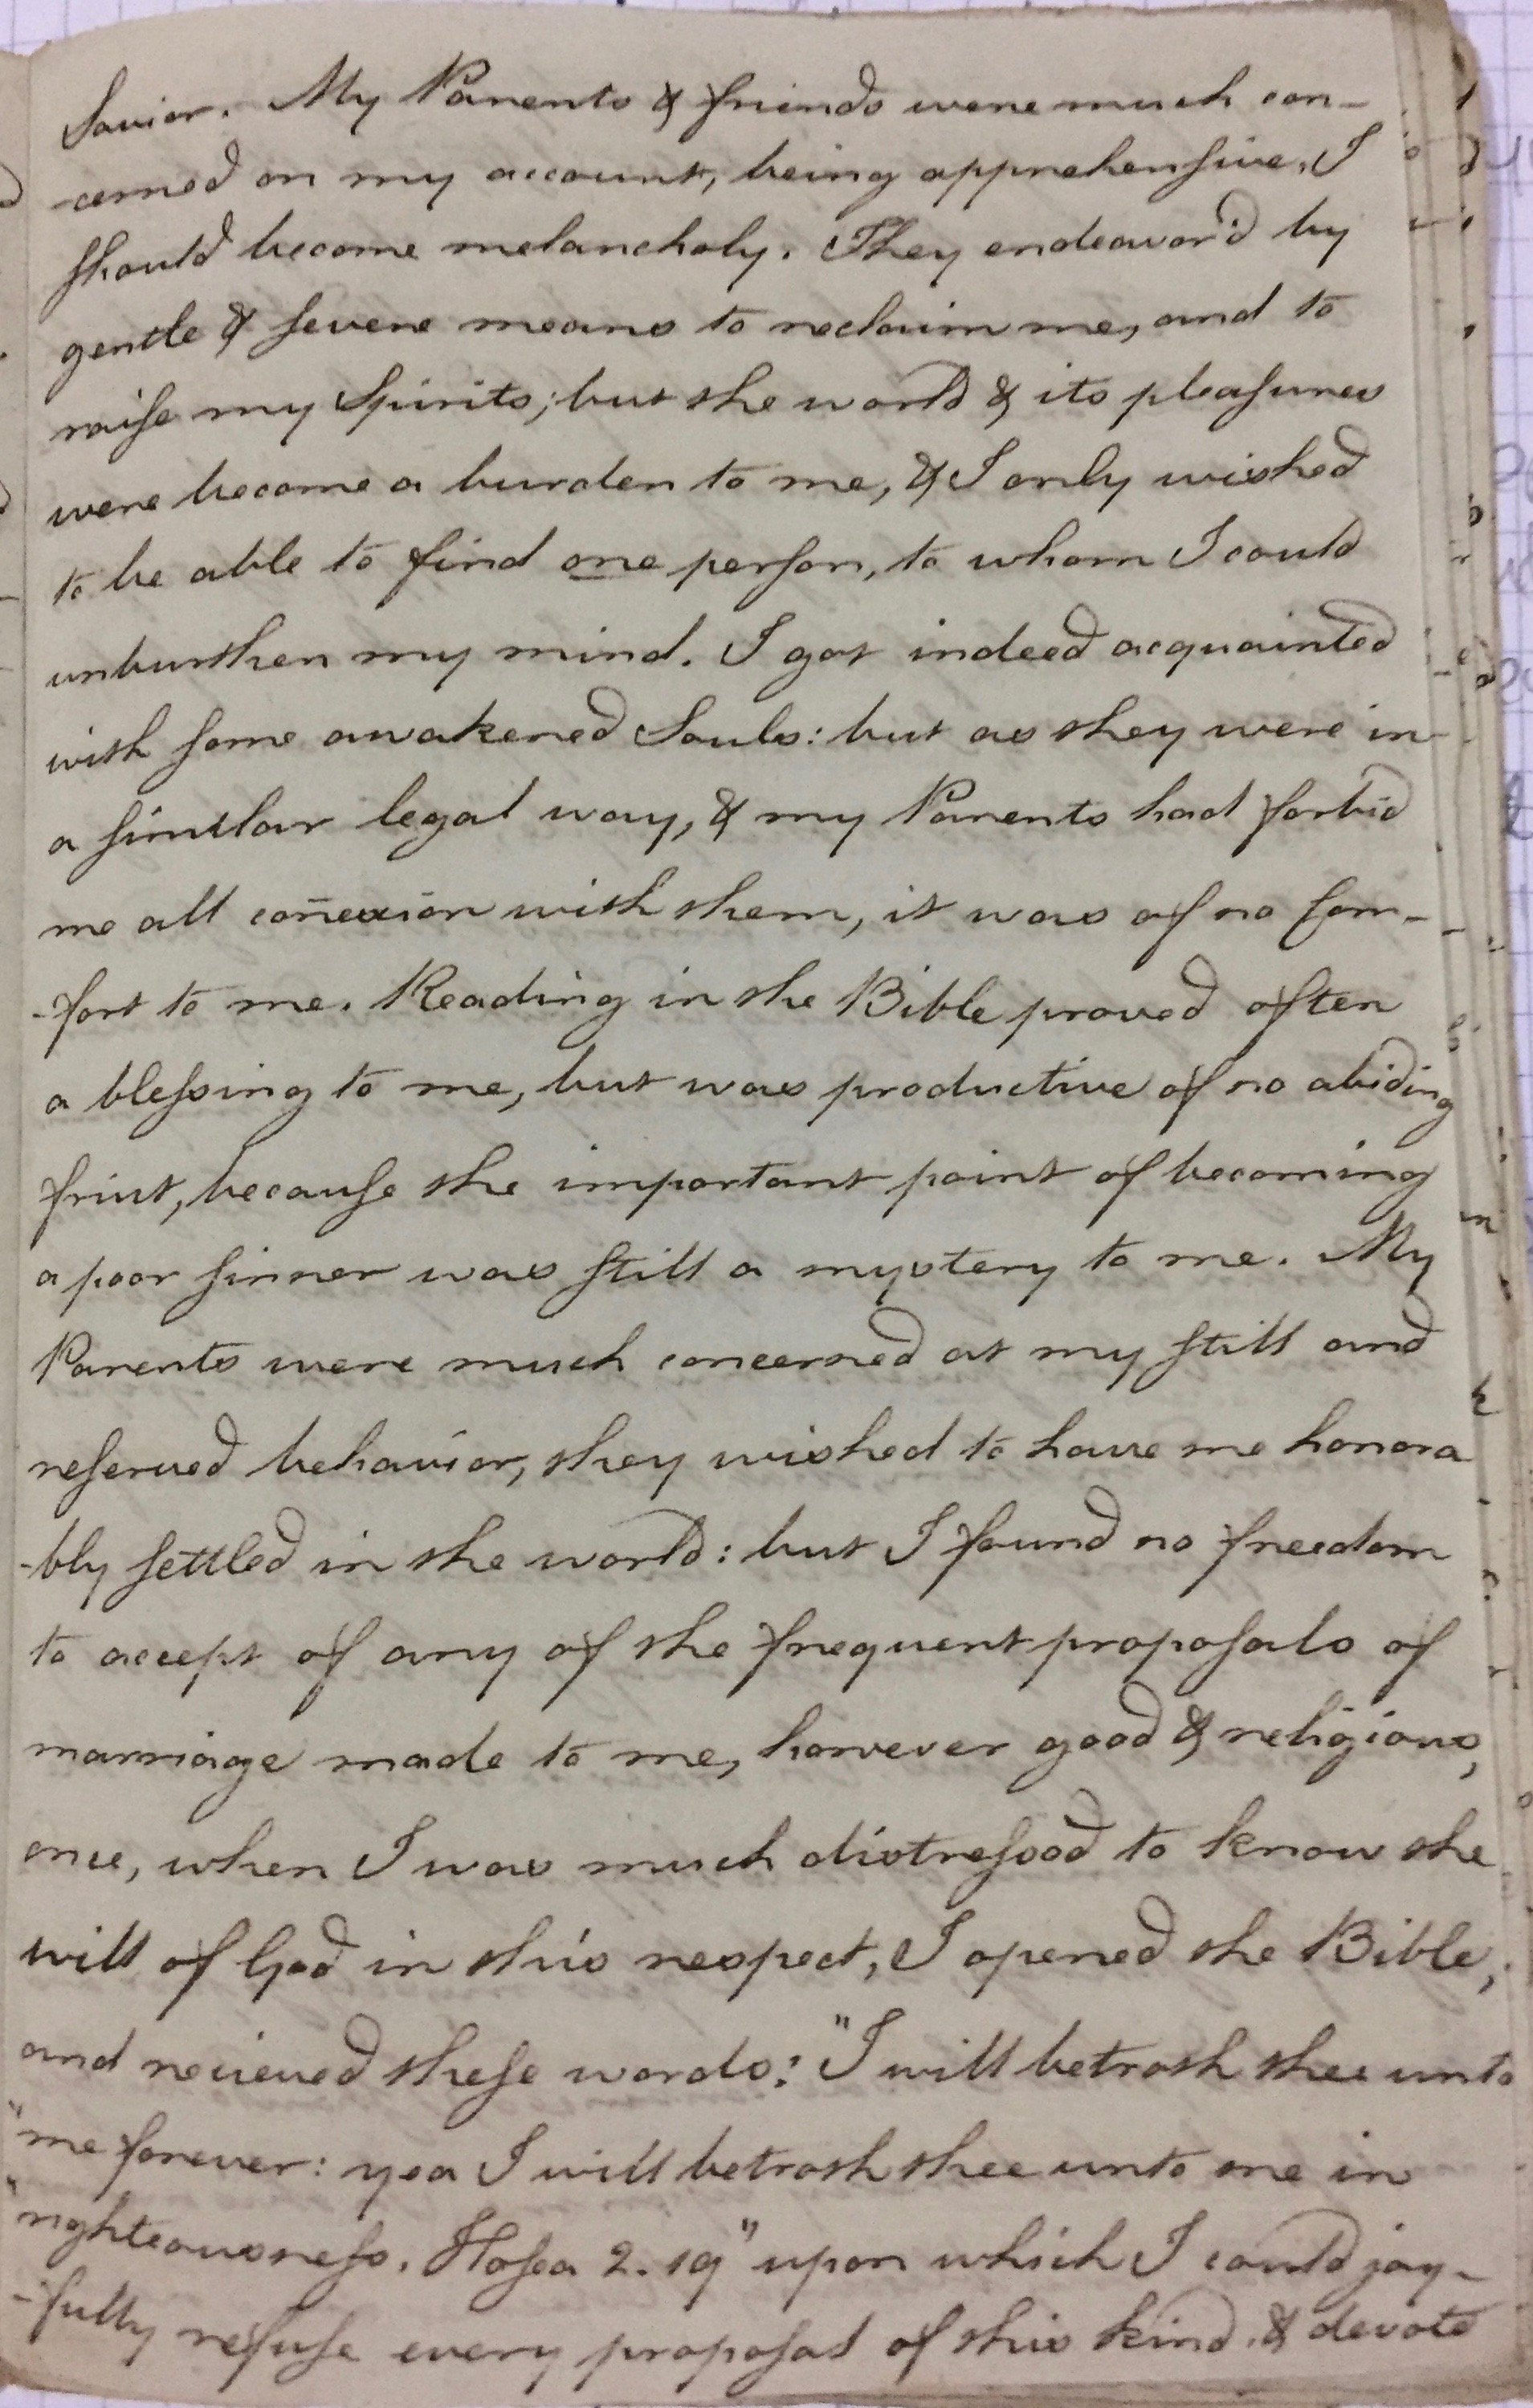 Savior. My Parents & friends were much con-
-cerned on my account, being apprehensive, I
should become melancholy. They endeavor'd by
gentle & severe means to reclaim me, and to
raise my Spirits; but the world & its pleasures
were become a burden to me, & I only wished
to be able to find one person, to whom I could
unburthen my mind. I got indeed acquainted
with some awakened Souls: but as they were in
a similar legal way, & my Parents had forbid
me all coñexion with them, it was of no com-
-fort to me. Reading in the Bible proved often
a blessing to me, but was productive of no abiding
fruit, because the important point of becoming
a poor sinner was still a mystery to me. My
Parents were much concerned at my still and
reserved behavior, they wished to have me honora
-bly settled in the world: but I found no freedom
to accept of any of the frequent proposals of
marriage made to me, however good & religious,
once, when I was much distressed to know the
will of God in this respect, I opened the Bible,
and recieved these words: "I will betroth thee unto
"me forever: yea I will betroth thee unto me in
"righteousness. Hosea 2. 19" upon which I could joy-
-fully refuse every proposal of this kind. & devote